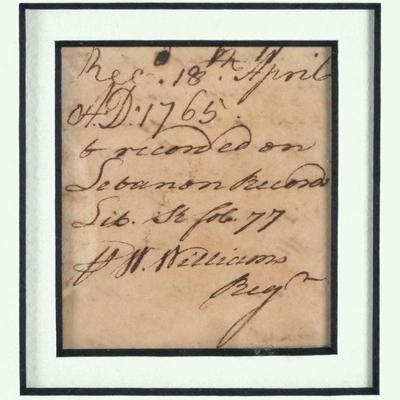 Rec. 18th April
A.D. 1765.
& recorded on
Lebanon Records
Lib. St fol. 77
W. Williams
Regr